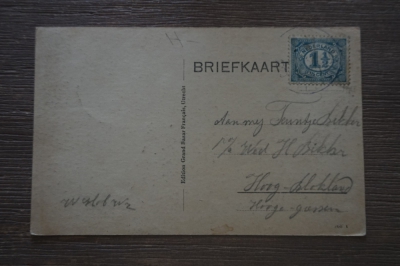 BRIEFKAART
Edition Grand Bazar Français, Utrecht
Aan mej Teuntje Bikker
p/a Wed. H Bikker
Hoog-Blokland
Hooge-
1½